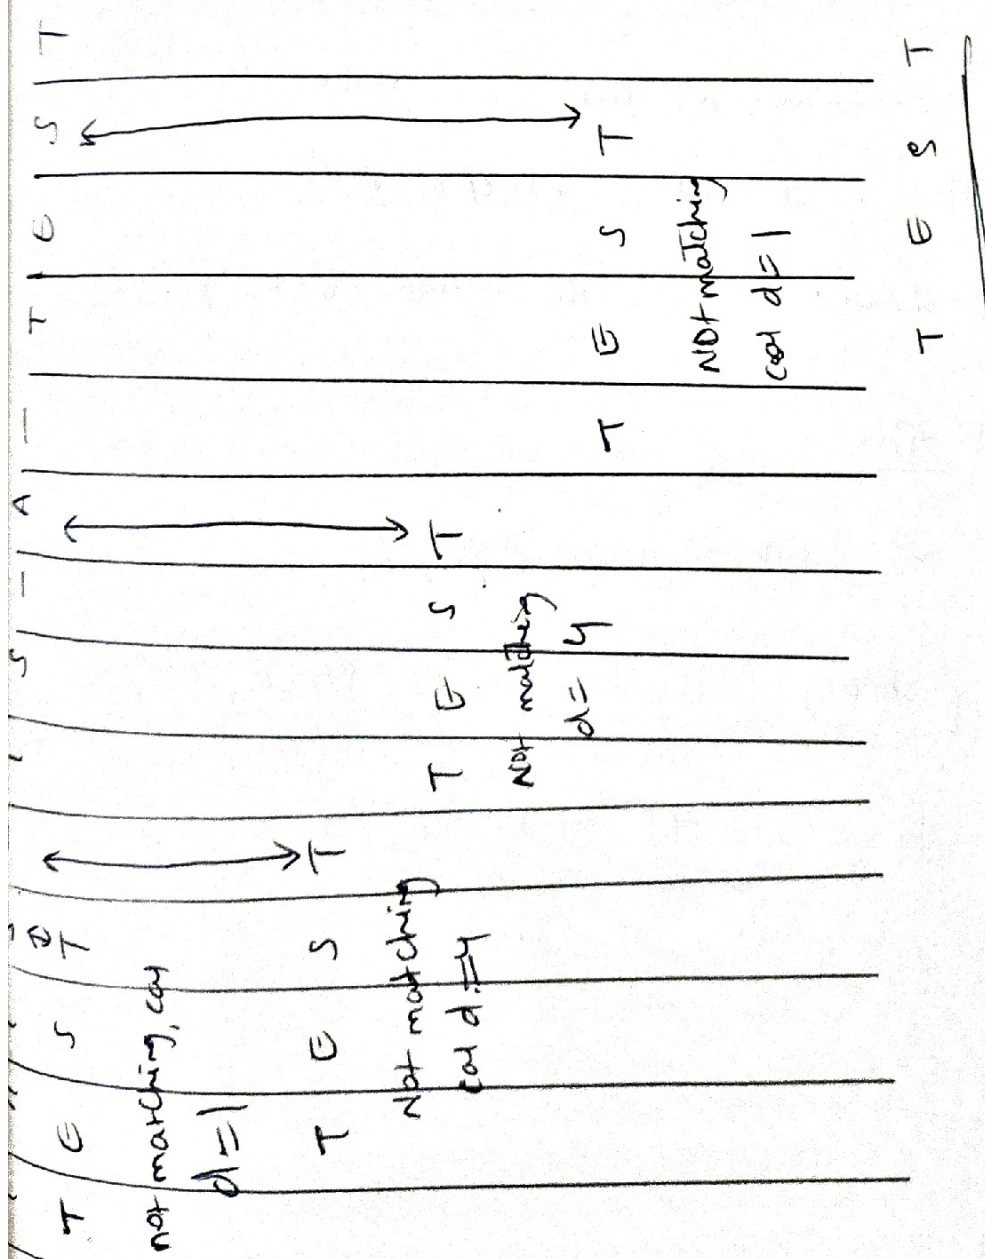 S - A - T E S T
T E S T
not matching, cal
d = 1
T E S T
Not matching
cal d = 4
T E S T
Not matching
d = 4
T E S T
Not matching
cal d = 1
T E S T